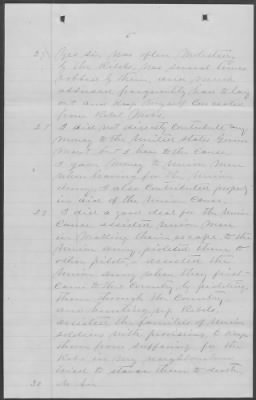 5
25 Yes sir, was often molested
by the Rebels, was several times
robbed by them, and much
abused frequently had to lay
out and keep myself concealed
from Rebel Mobs.
27 I did not directly contribute any
money to the United States Govern
ment but I did to the cause.
I gave money to Union men
when leaving for the Union
Army, I also contributed property
in aid of the Union Cause.
28 I did a good deal for the Union
Cause assisted Union men
in making their escape to the
Union Army, piloted them to
other pilots, assisted the
Union Army when they first
came to this County by piloting
them through the County
and hunting up Rebels,
assisted the families of Union
soldiers with provisions, to keep
them from suffering, for the
Rebs in my neighborhood
tried to starve them to death,
30 No Sir